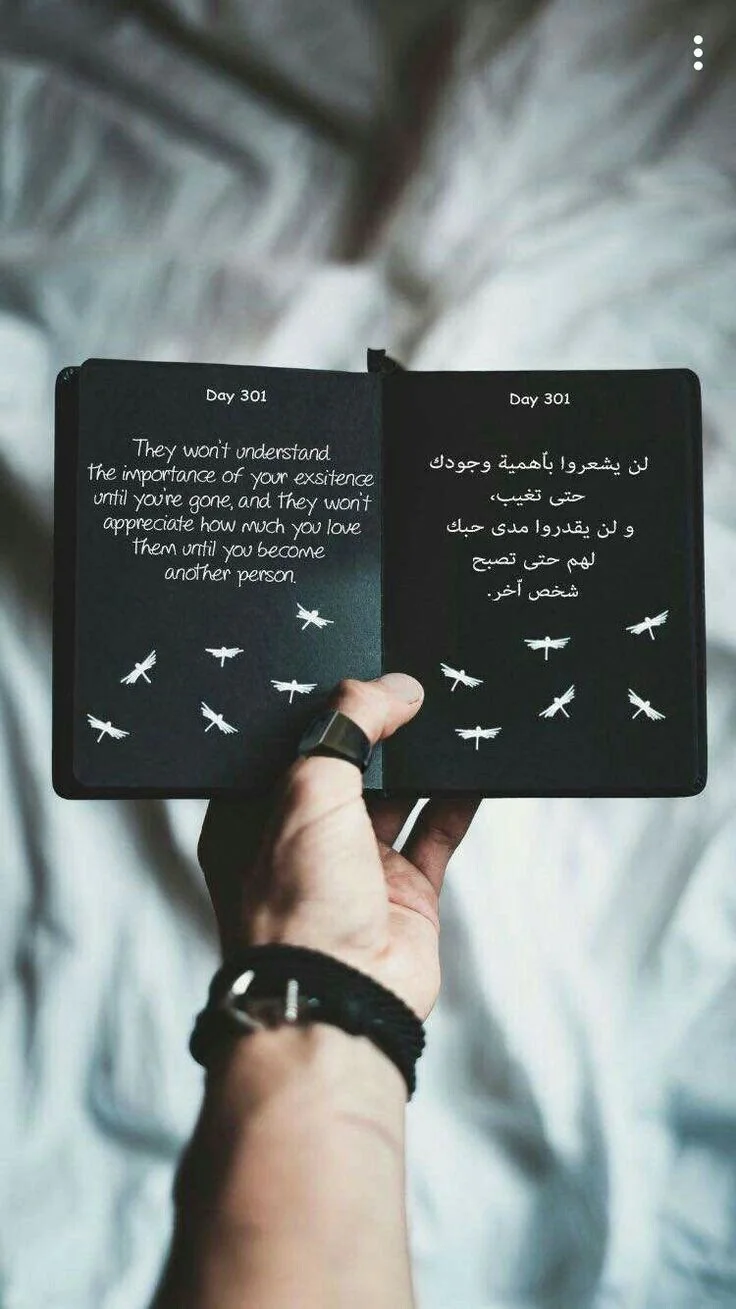 Day 301
They won't understand
the importance of your exsitence
until you're gone, and they won't
appreciate how much you love
them until you become
another person.
Day 301
لن يشعروا بأهمية وجودك
حتى تغيب،
و لن يقدروا مدى حبك
لهم حتى تصبح
شخص آخر.